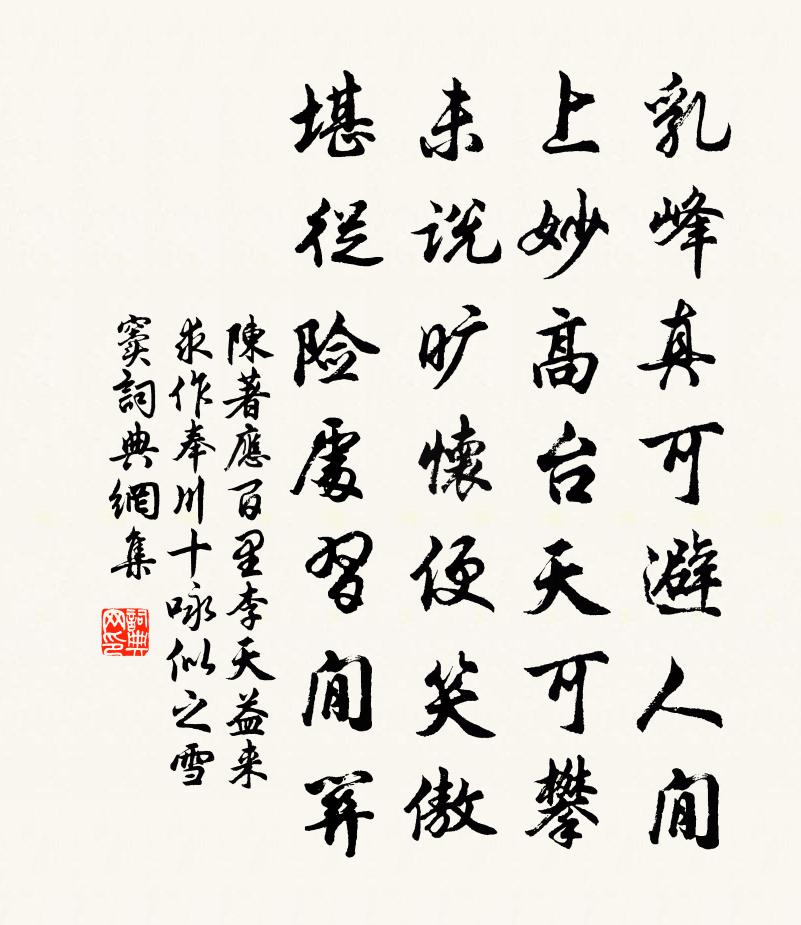 乳峰真可避人间
上妙高台天可攀
未说旷懷便笑傲
堪從险處習间关
陳著應百里李天益来
求作奉川十咏似之雪
窦詞典網集
詞典网印